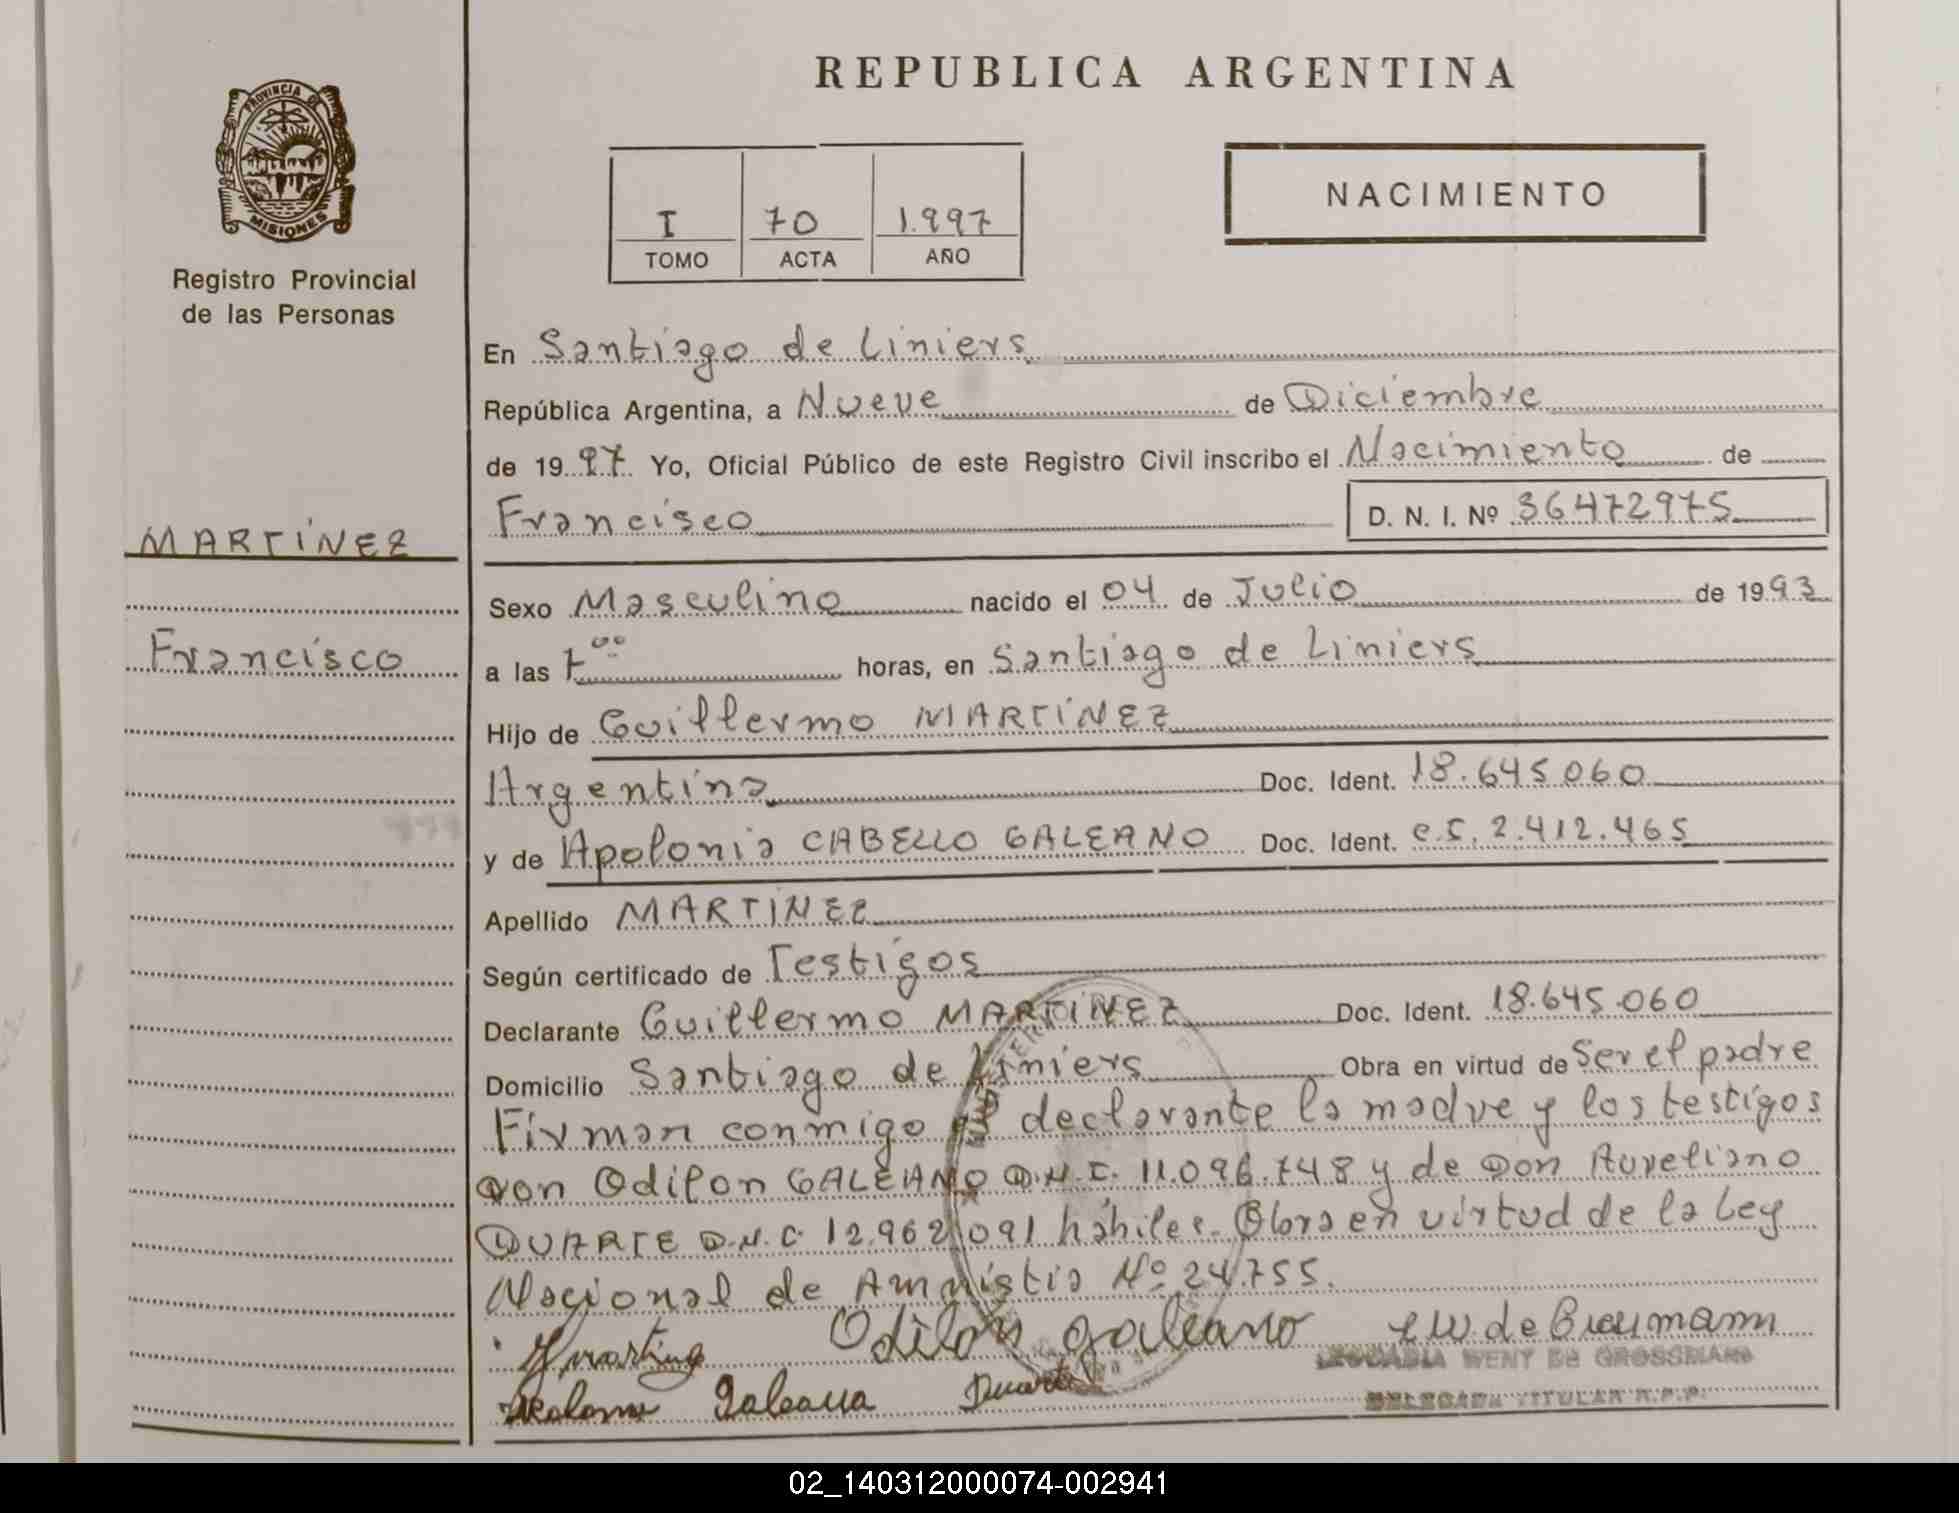 REPUBLICA ARGENTINA
PROVINCIA DE
MISIONES
Registro Provincial
de las Personas
I 70 1.997
TOMO ACTA AÑO
NACIMIENTO
MARTÍNEZ
Francisco
En Santiago de Liniers
República Argentina, a Nueve de Diciembre
de 1997 Yo, Oficial Público de este Registro Civil inscribo el Nacimiento de
Francisco D. N. I. Nº 36472975
Sexo Masculino nacido el 04 de Julio de 1993
a las 7 00 horas, en Santiago de Liniers
Hijo de Guillermo MARTÍNEZ
Argentina Doc. Ident. 18.645.060
y de Apolonia CABELLO GALEANO Doc. Ident. c.s. 2.412.465
Apellido MARTÍNEZ
Según certificado de Testigos
Declarante Guillermo MARTÍNEZ Doc. Ident. 18.645.060
Domicilio Santiago de Liniers Obra en virtud de Ser el padre
Firman conmigo el declarante la madre y los testigos
Don Odilon GALEANO D.N.I. 11.096.748 y de Don Aureliano
DUARTE D.N.I. 12.962.091 hábiles. Obra en virtud de la Ley
Nacional de Amnistia Nº 24.755.
Odilon galeano
Galeana Duarte
DELEGADA TITULAR R.P.P.
02_140312000074-002941